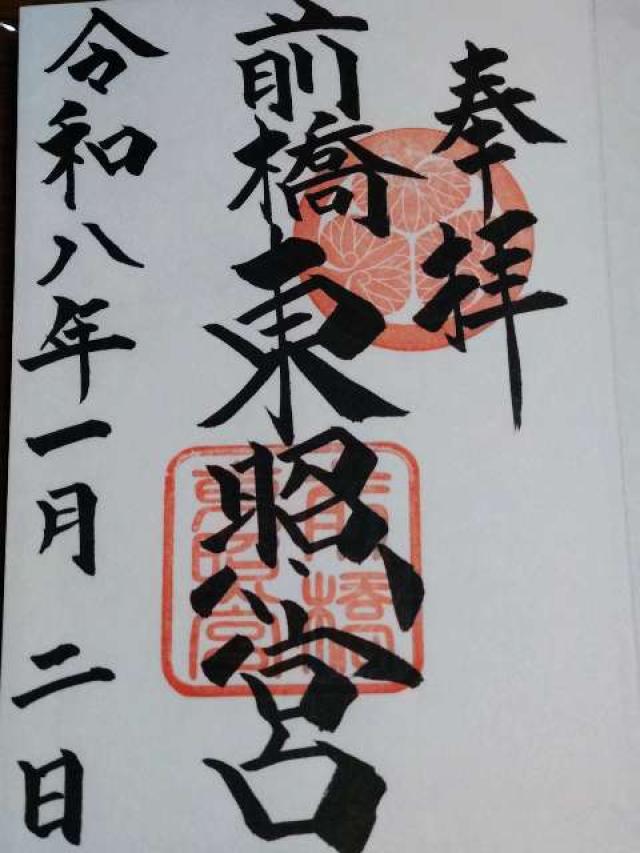 奉拝
前橋東照宮
令和八年一月二日
前橋
東照宮